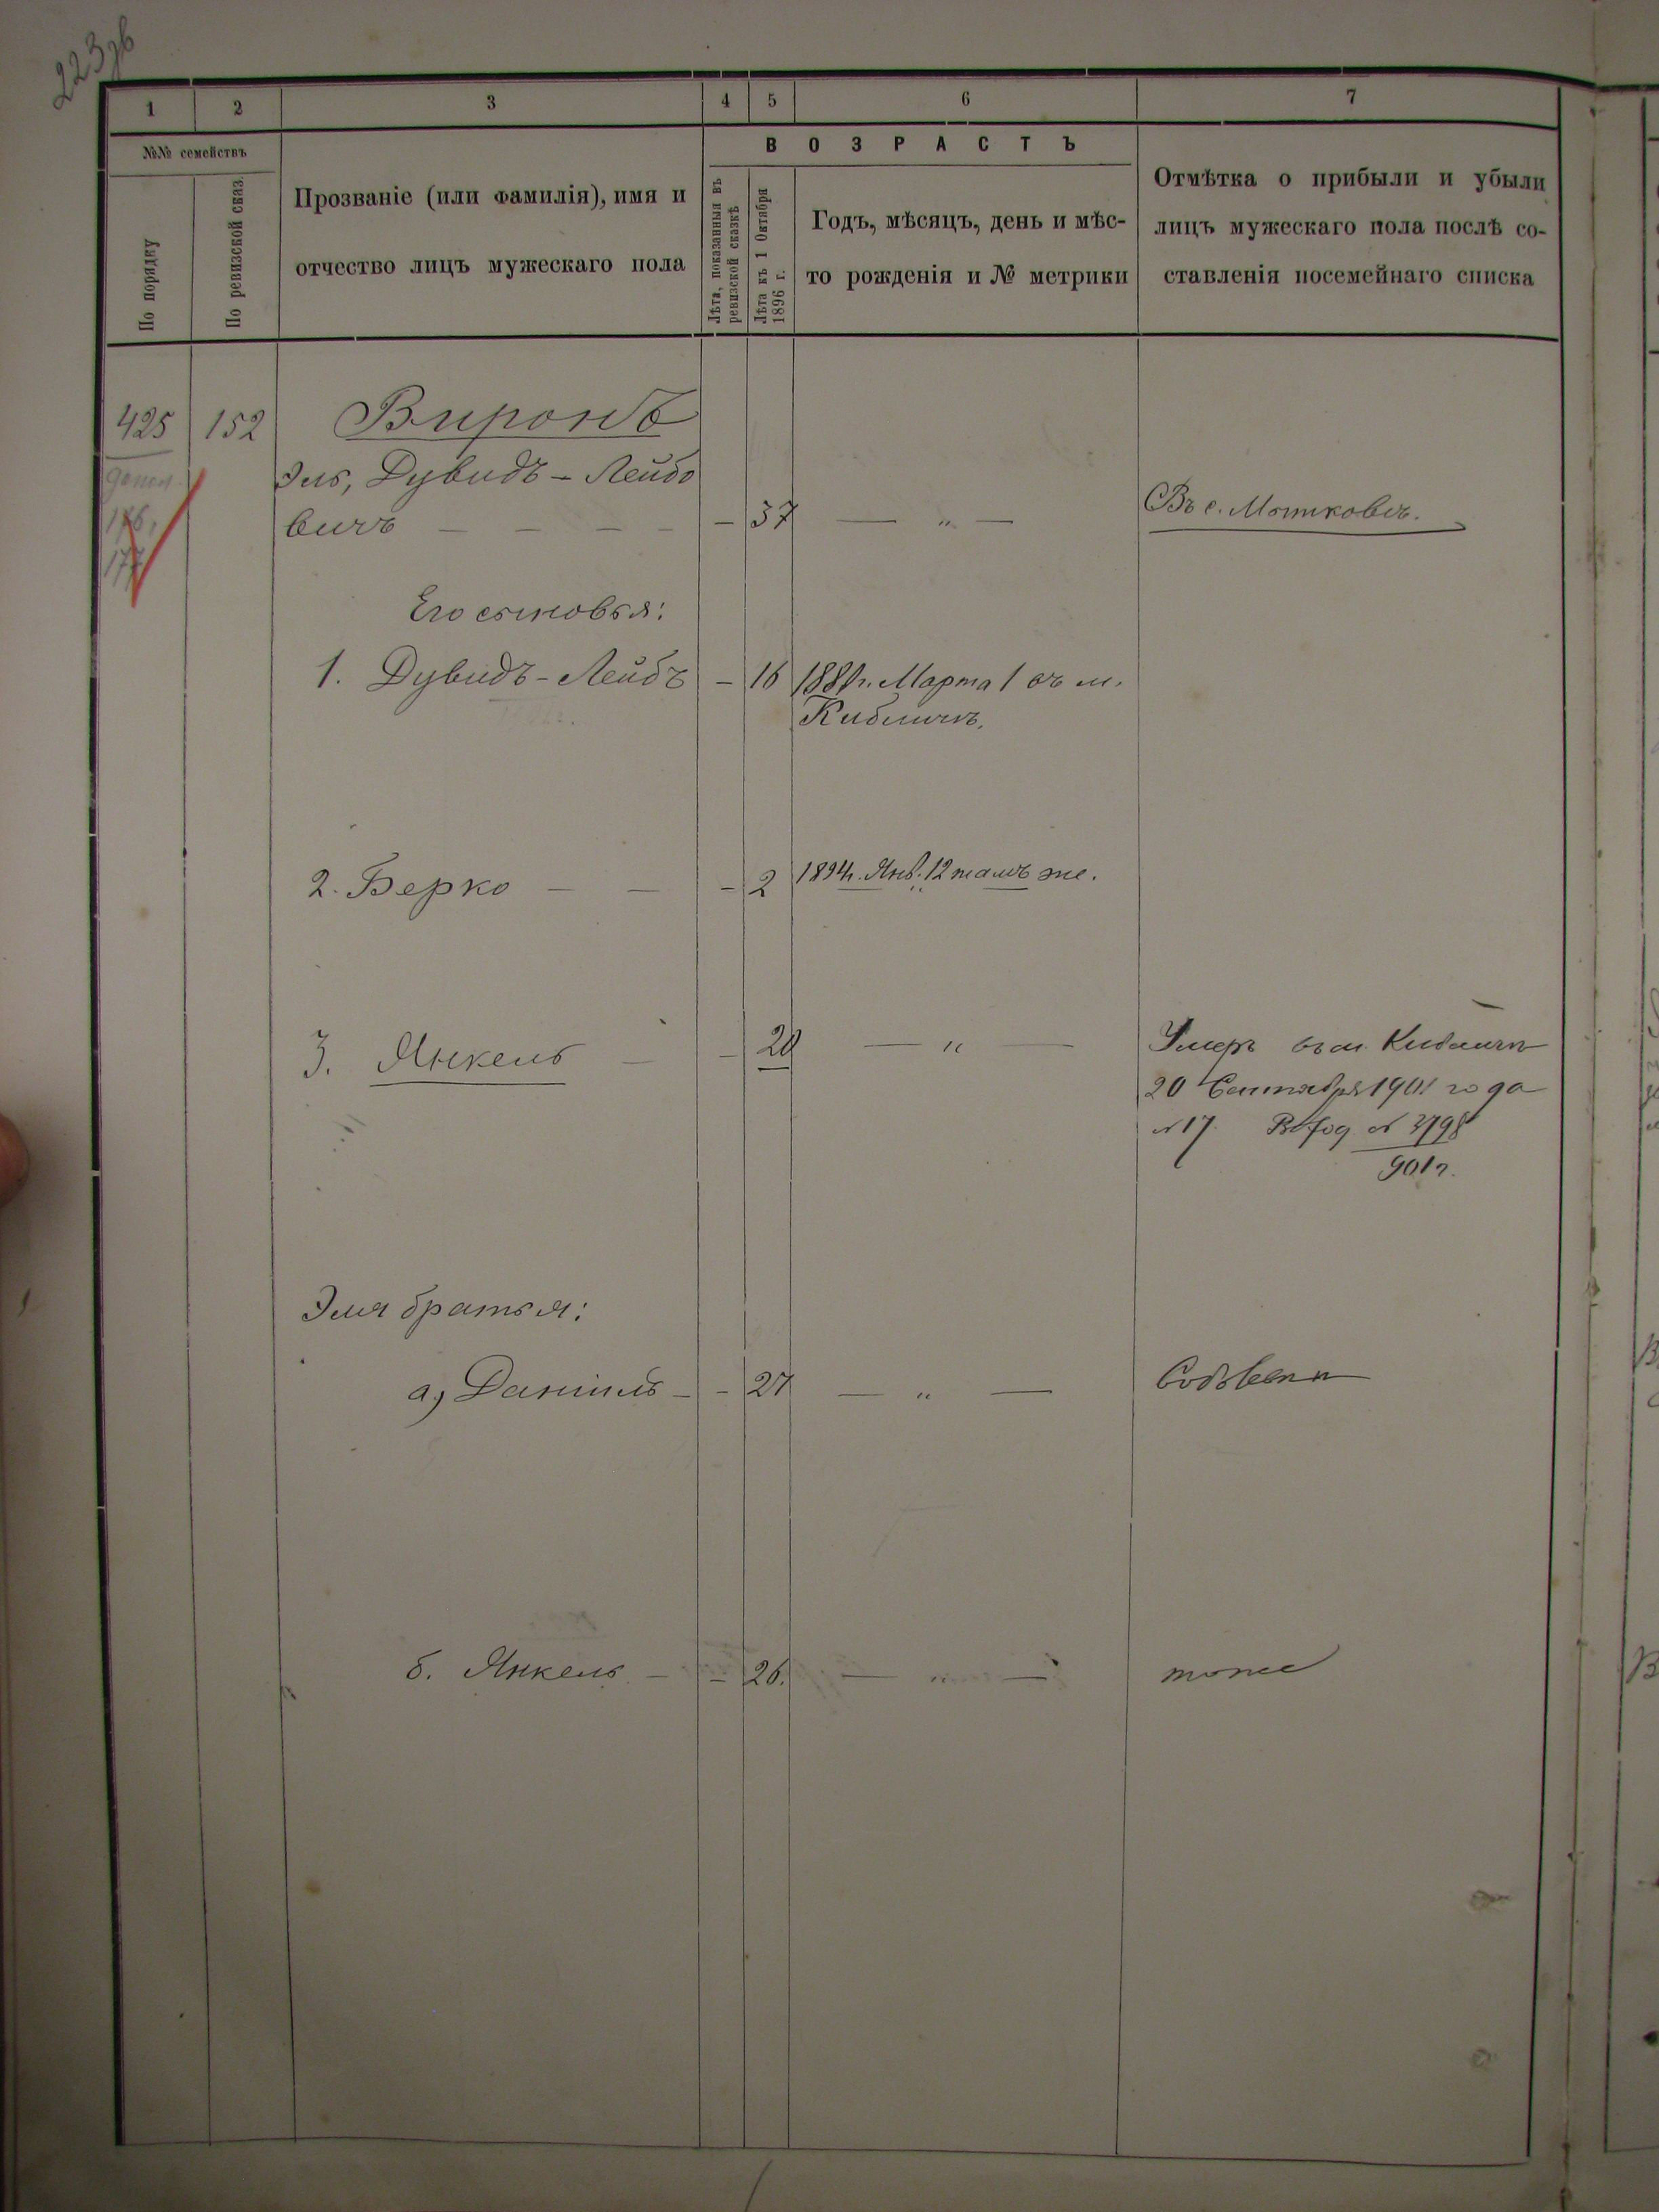 223 об
1 2 3 4 5 6 7
№№ семействъ
По порядку
По ревизской сказ.
Прозваніе (или фамилія), имя и
отчество лицъ мужескаго пола
ВОЗРАСТЪ
Лѣта, показанныя въ
ревизской сказкѣ
Лѣта къ 1 Октября
1896 г.
Годъ, мѣсяцъ, день и мѣс-
то рожденія и № метрики
Отмѣтка о прибыли и убыли
лицъ мужескаго пола послѣ со-
ставленія посемейнаго списка
425 152 Виронъ
допол.
176,
177
Эль, Дувидъ-Лейбо
вичъ — — — — — 37 — „ — Въ с. Мотиковъ.
Его сыновья:
1. Дувидъ-Лейбъ — 16 188 г. Марта 1 въ м.
Кибличъ.
2. Берко — — — 2 1894 г. Янв. 12 тамъ же.
3. Янкель — — 20 — „ — Умеръ въ м. Кибличъ
20 Сентября 1901 года
№ 17. Вход № 3798
901 г.
Эля братья:
а) Даніилъ — — 27 — „ —
б. Янкель — — 26. — „ — тоже